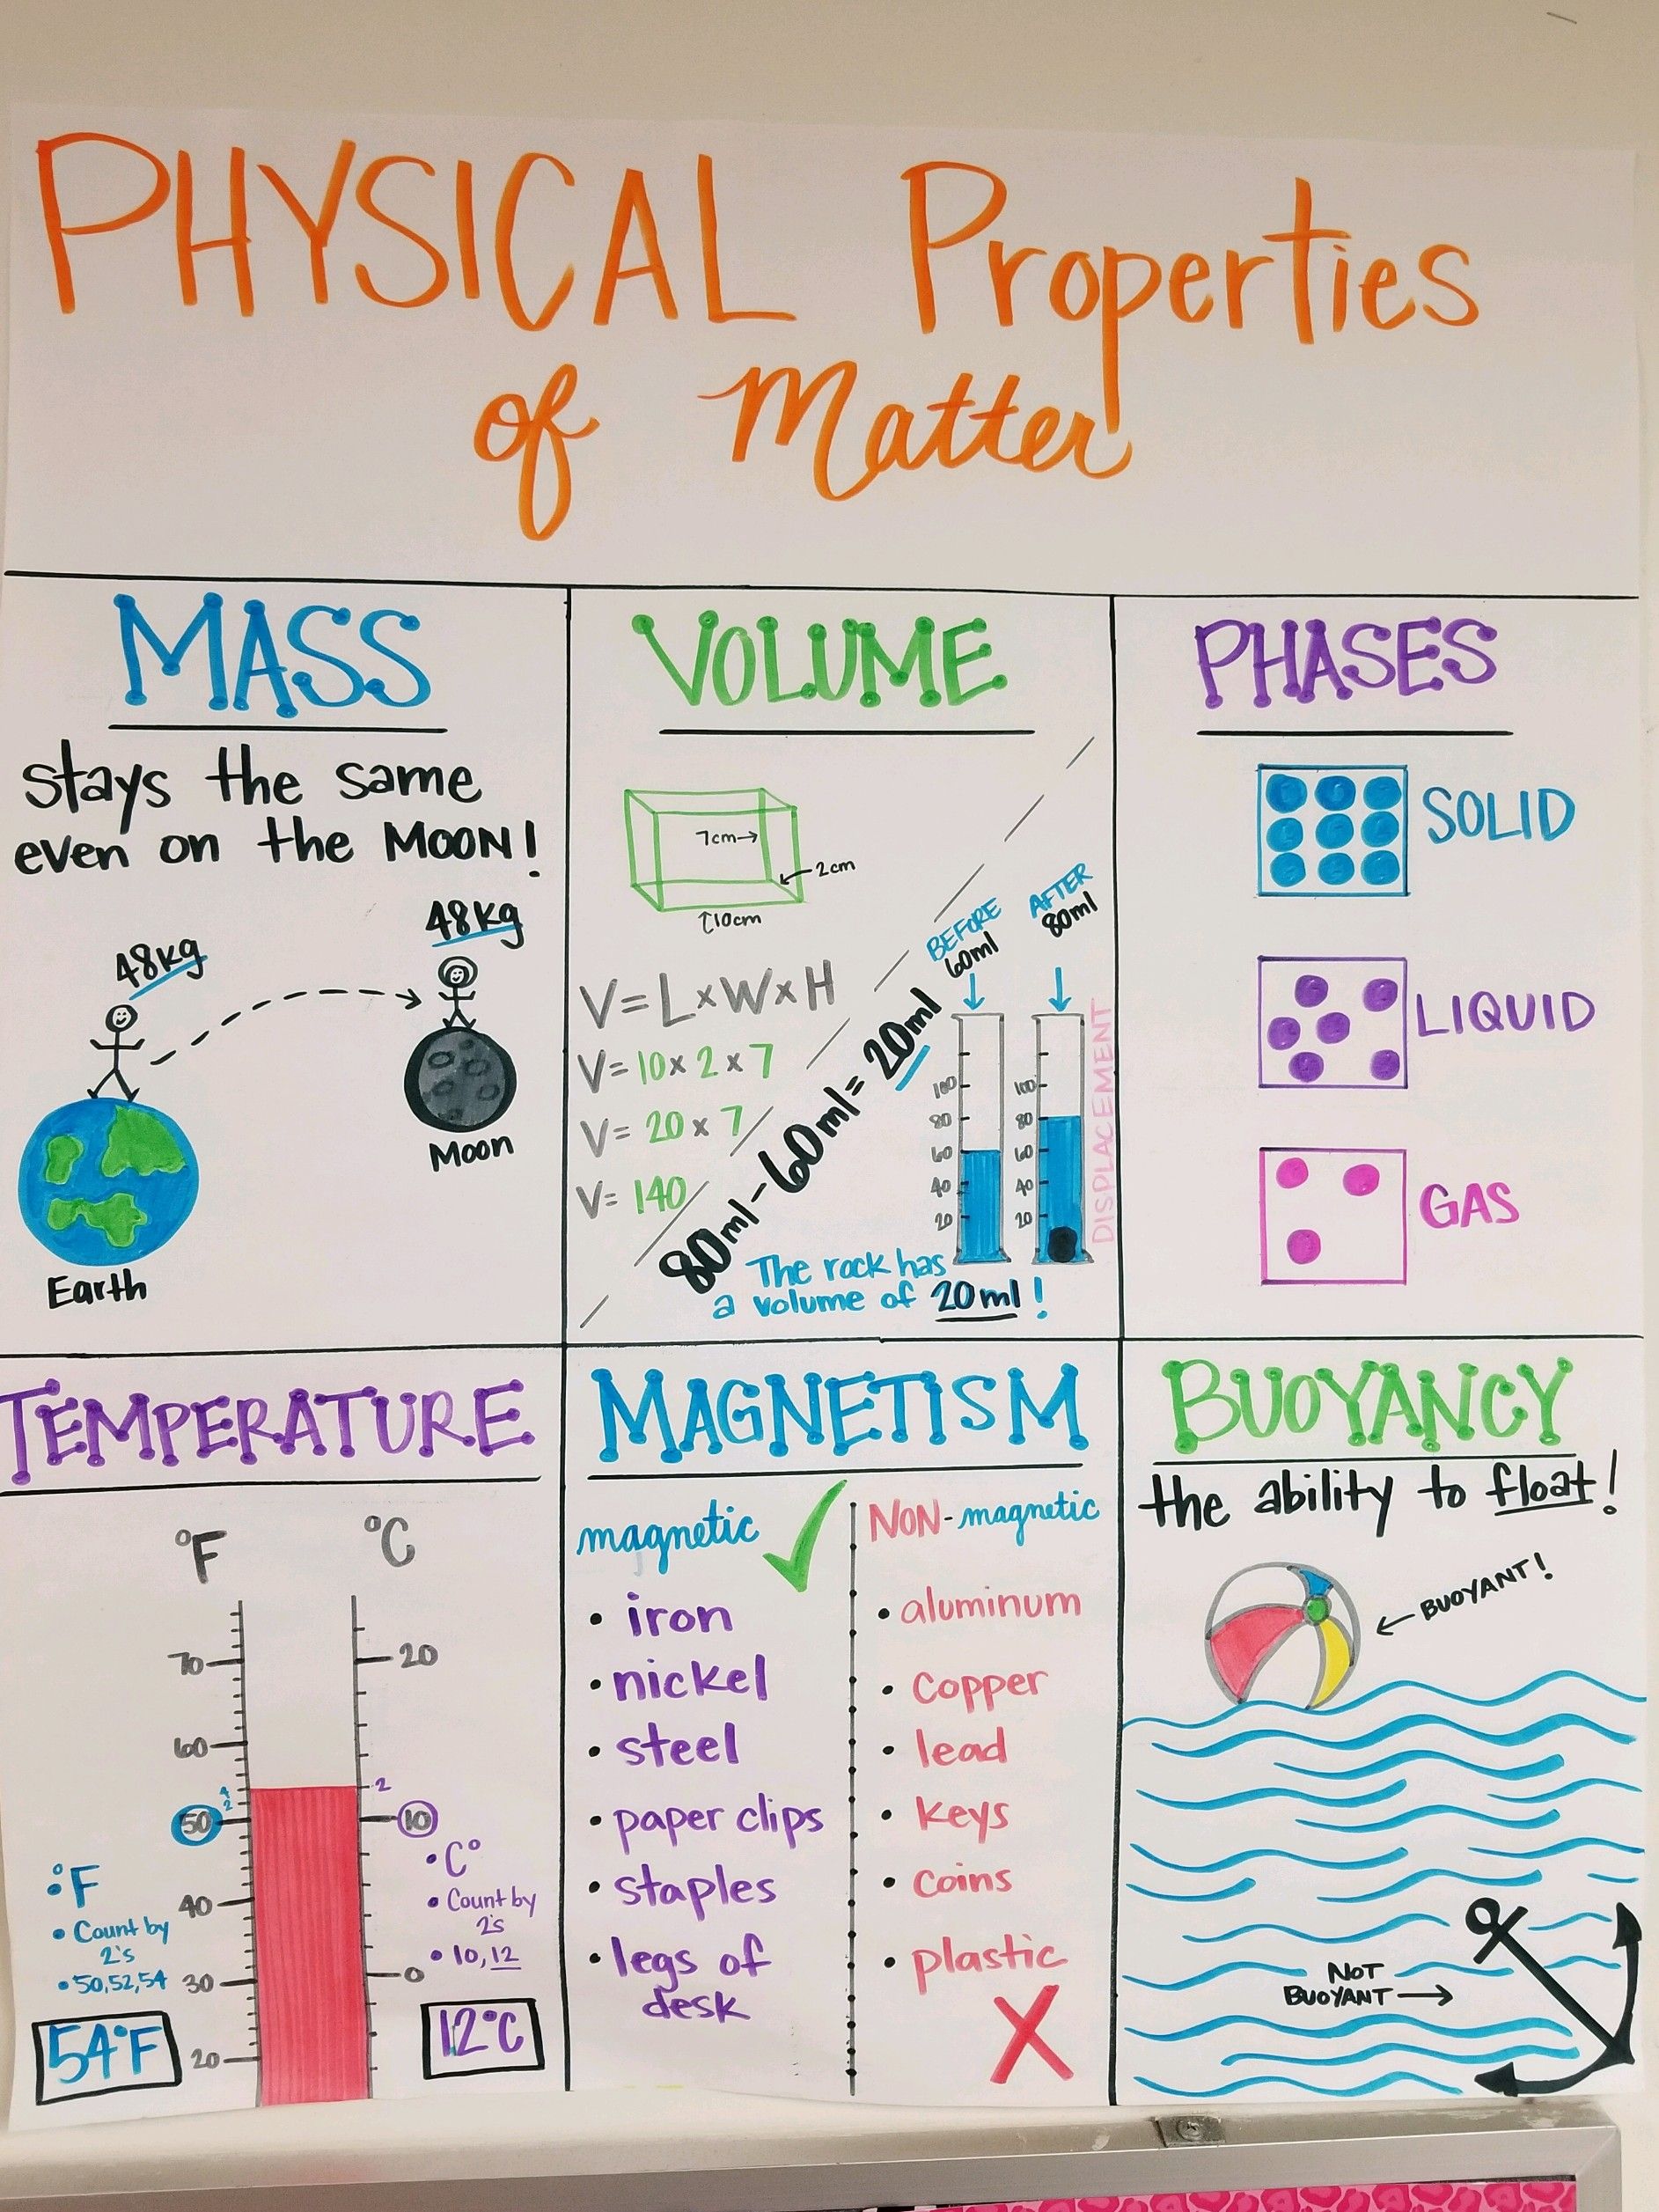 PHYSICAL Properties
of Matter
MASS
stays the same
even on the MOON!
48kg
48kg
Moon
Earth
VOLUME
7cm
2cm
10cm
V=L×W×H
V=10×2×7
V=20×7
V=140
80ml-60ml=20ml
BEFORE
60ml
AFTER
80ml
100
80
60
40
20
100
80
60
40
20
DISPLACEMENT
The rock has
a volume of 20ml!
PHASES
SOLID
LIQUID
GAS
TEMPERATURE
°F
°C
70
60
4
2
50
40
30
20
20
2
10
0
°F
• Count by
2's
• 50,52,54
54°F
• C°
• Count by
2's
• 10,12
12°C
MAGNETISM
magnetic
• iron
• nickel
• steel
• paper clips
• staples
• legs of
desk
NON-magnetic
• aluminum
• copper
• lead
• keys
• coins
• plastic
BUOYANCY
the ability to float!
BUOYANT!
NOT
BUOYANT